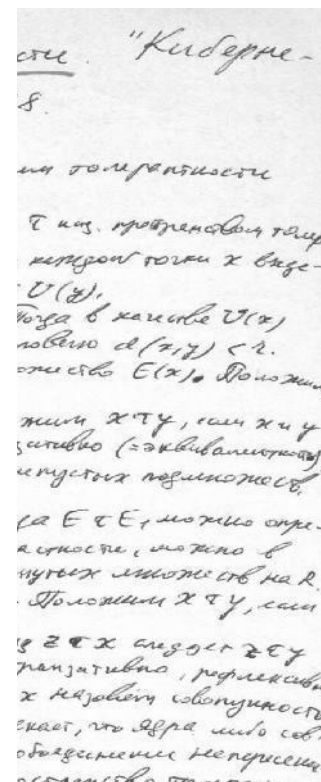 сти. "Киберне-
8.
ии толерантности
τ наз. пространством толер
каждой точки x выде-
U(y).
Тогда в качестве U(x)
ловию d(x,y) < r.
ожество E(x). Положим
жим xτy, если x и y
зитивно (=эквивалентность)
непустых подмножеств.
да E τ E, можно опре-
астности, можно в
нутых множеств на R.
. Положим x τ y, если
из z τ x следует z τ y
транзитивно, рефлексивн
x назовём совокупность
екает, что ядра либо сов-
объединение непересека